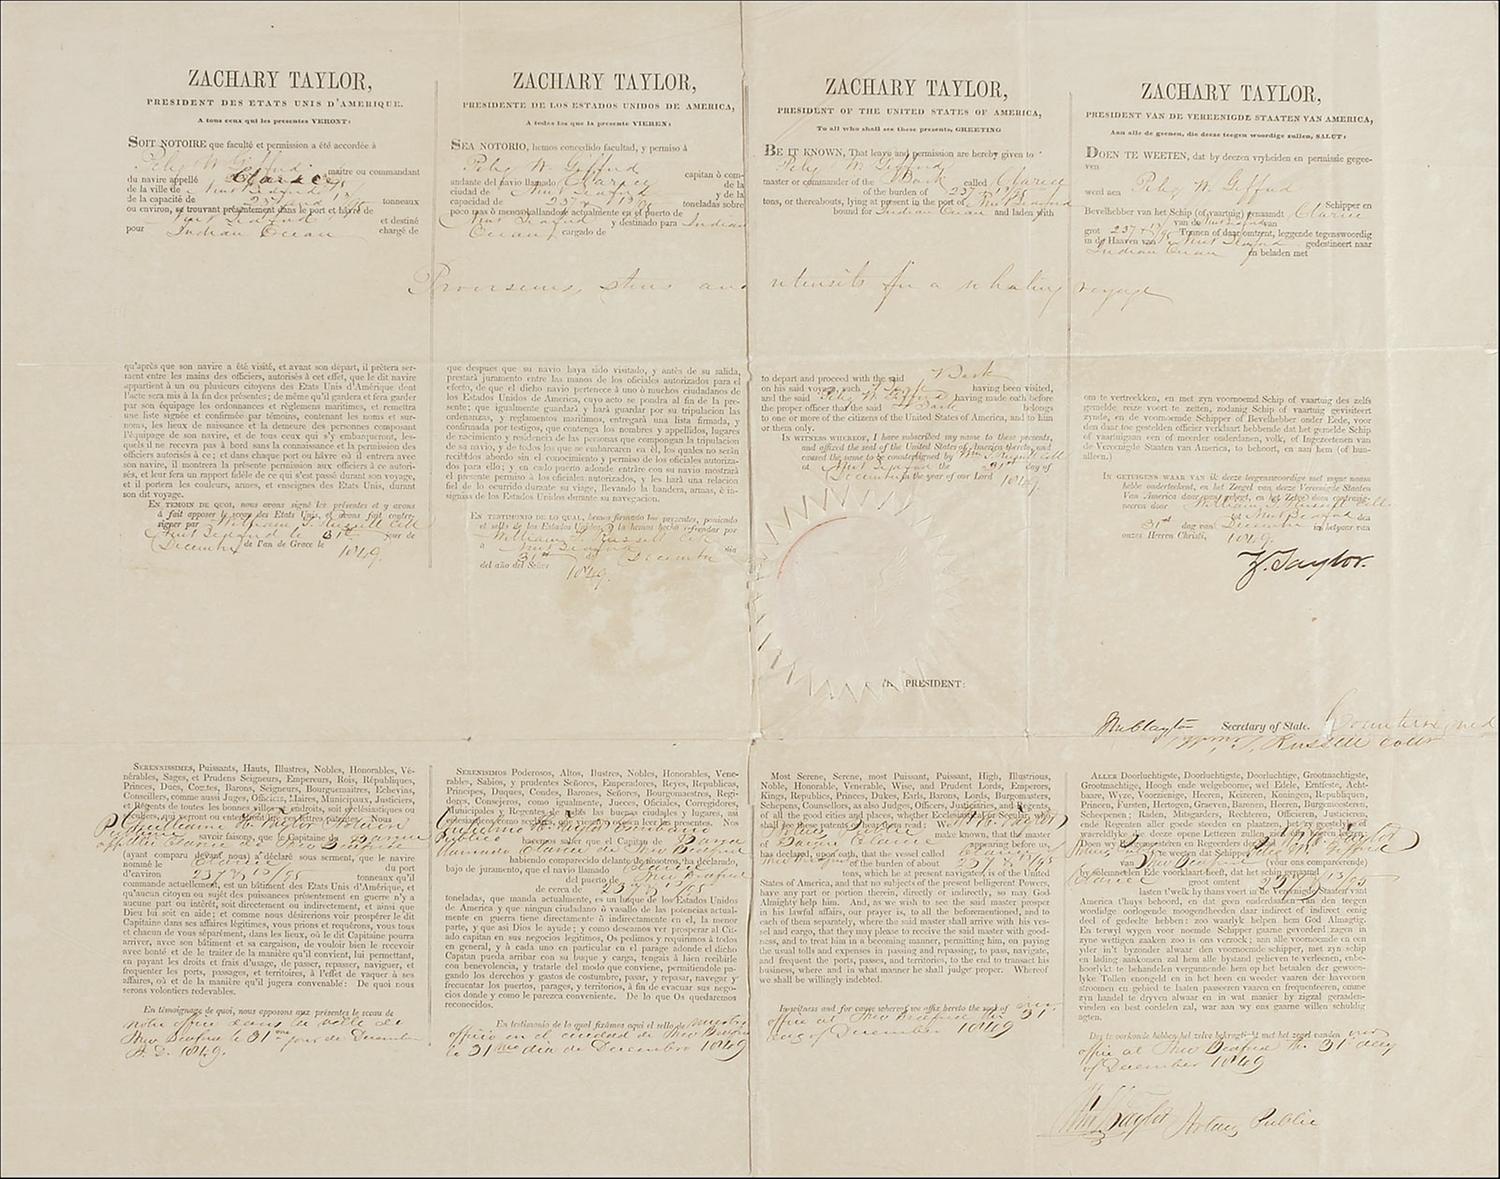 ZACHARY TAYLOR,
PRESIDENT DES ETATS UNIS D'AMERIQUE.
A tous ceux qui les présentes VERONT:
SOIT NOTOIRE que faculté et permission a été accordée à
Peleg W. Gifford maître ou commandant
du navire appellé Clarice
de la ville de New Bedford
de la capacité de 237 & 13/95 tonneaux
ou environ, se trouvant présentement dans le port et hâvre de
New Bedford et destiné
pour Indian Ocean chargé de
ZACHARY TAYLOR,
PRESIDENTE DE LOS ESTADOS UNIDOS DE AMERICA,
A todos los que la presente VIEREN:
SEA NOTORIO, hemos concedido facultad, y permiso á
Peleg W. Gifford capitan ó com-
andante del navio llamado Clarice de la
ciudad de New Bedford y de la
capacidad de 237 & 13/95 toneladas sobre
poco mas ó menos, hallandose actualmente en el puerto de
New Bedford y destinado para Indian
Ocean cargado de
ZACHARY TAYLOR,
PRESIDENT OF THE UNITED STATES OF AMERICA,
To all who shall see these presents, GREETING
BE IT KNOWN, That leave and permission are hereby given to
Peleg W. Gifford
master or commander of the Bark called Clarice
of the burden of 237 & 13/95
tons, or thereabouts, lying at present in the port of New Bedford
bound for Indian Ocean and laden with
ZACHARY TAYLOR,
PRESIDENT VAN DE VEREENIGDE STAATEN VAN AMERICA,
Aan alle de geenen, die deeze teegen woordige zullen, SALUT:
DOEN TE WEETEN, dat by deezen vryheiden en permissie gegee-
ven
werd aen Peleg W. Gifford
Schipper en
Bevelhebber van het Schip (of vaartuig) genaamdt Clarice
van de New Bedford van
grot 237 & 13/95 Tonnen of daar omtrent, leggende tegenswoordig
in de Haaven van New Bedford gedestineert naar
Indian Ocean en beladen met
Provisions, stores and utensils for a whaling voyage
qu'après que son navire a été visité, et avant son départ, il prêtera ser-
ment entre les mains des officiers, autorisés à cet effet, que le dit navire
appartient à un ou plusieurs citoyens des Etats Unis d'Amérique dont
l'acte sera mis à la fin des présentes; de même qu'il gardera et fera garder
par son équipage les ordonnances et règlemens maritimes, et remettra
une liste signée et confirmée par témoins, contenant les noms et sur-
noms, les lieux de naissance et la demeure des personnes composant
l'équipage de son navire, et de tous ceux qui s'y embarqueront, les-
quels il ne recevra pas à bord sans la connaissance et la permission des
officiers autorisés à ce; et dans chaque port ou hâvre où il entrera avec
son navire, il montrera la présente permission aux officiers à ce autori-
sés, et leur fera un rapport fidèle de ce qui s'est passé durant son voyage,
et il portera les couleurs, armes, et enseignes des Etats Unis, durant
son dit voyage.
EN TEMOIN DE QUOI, nous avons signé les présentes et y avons
à fait apposer le sceau des Etats Unis, et avons fait contre-
signer par William T. Russell Coll
New Bedford le 31st jour de
Decembre de l'an de Grace le 1849.
que despues que su navio haya sido visitado, y antés de su salida,
prestará juramento entre las manos de los oficiales autorizados para el
efecto, de que el dicho navio pertenece á uno ó muchos ciudadanos de
los Estados Unidos de América, cuyo acto se pondra al fin de la pre-
sente; que igualmente guardará y hará guardar por su tripulacion las
ordenanzas, y reglamentos maritimos, entregará una lista firmada, y
confirmada por testigos, que contenga los nombres y appellidos, lugares
de nacimiento y residencia de las personas que compongan la tripulacion
de su navio, y de todos los que se embarcaren en él, los quales no serán
recibidos abordo sin el conocimiento y permiso de los oficiales autoriza-
dos para ello; y en cada puerto adonde entráre con su navio mostrará
el presente permiso á los oficiales autorizados, y les hará una relación
fiel de lo ocurrido durante su viage, llevando la bandera, armas, é in-
signias de los Estados Unidos durante su navegacion.
EN TESTIMONIO DE LO QUAL, hemos firmado los presentes, poniendo
el sello de los Estados Unidos, y la hemos hecho refrendar por
William T. Russell Coll
á New Bedford dia
31st de Decembre
del año del Señor 1849.
to depart and proceed with the said Bark
on his said voyage, such having been visited,
and the said Peleg W. Gifford having made oath before
the proper officer that the said Bark belongs
to one or more of the citizens of the United States of America, and to him
or them only.
IN WITNESS WHEREOF, I have subscribed my name to these presents,
and affixed the seal of the United States of America thereto, and
caused the same to be countersigned by Wm T. Russell Coll
at New Bedford the 31st day of
December in the year of our Lord 1849
om te vertrekken, en met zyn voornoemd Schip of vaartuig des zelfs
gemelde reize voort te zetten, zodanig Schip of vaartuig gevisiteert
zynde, en de voornoemde Schipper of Bevelhebber onder Eede, voor
den daar toe gestelden officier verklaart hebbende dat het gemelde Schip
of vaartuig aan een of meerder onderdanen, volk, of Ingezetenen van
de Vereenigde Staaten van America, to behoort, en aan hem (of hun-
alleen.)
IN GETEIGENS WAAR VAN ik deeze tegenwoordige met myne naam
hebbe onderteekent, en het Zeegel van deeze Vereenigde Staaten
Van America daar aan gehegt, en het Zelve doen contraig-
neeren door William T. Russell Coll
tot New Bedford den
31st dag van Decembre in het year van
onzes Heeren Christi, 1849.
Z. Taylor.
PRESIDENT:
Jn M Clayton Secretary of State. Countersigned
Wm T. Russell Collr
SERENNISSIMES, Puissants, Hauts, Illustres, Nobles, Honorables, Vé-
nérables, Sages, et Prudens Seigneurs, Empereurs, Rois, Républiques,
Princes, Ducs, Comtes, Barons, Seigneurs, Bourguemaîtres, Echevins,
Conseillers, comme aussi Juges, Officiers, Maires, Municipaux, Justiciers,
et Régents de toutes les bonnes villes et endroits, soit ecclésiastiques ou
séculiers, qui verront ou entendront lire ces lettres patentes. Nous
William H. Taylor Notaire
publique savoir faisons, que le Capitaine du Barque
appellée Clarice de New Bedford
(ayant comparu devant nous) a déclaré sous serment, que le navire
nommé le Clarice du port
d'environ 237 & 13/95 tonneaux qu'il
commande actuellement, est un bâtiment des Etats Unis d'Amérique, et
qu'aucun citoyen ou sujet des puissances présentement en guerre n'y a
aucune part ou intérêt, soit directement ou indirectement, et ainsi que
Dieu lui soit en aide; et comme nous désirerions voir prospérer le dit
Capitaine dans ses affaires légitimes, vous prions et requérons, vous tous
et chacun de vous séparément, dans les lieux, où le dit Capitaine pourra
arriver, avec son bâtiment et sa cargaison, de vouloir bien le recevoir
avec bonté et de le traiter de la manière qu'il convient, lui permettant,
en payant les droits et frais d'usage, de passer, repasser, naviguer, et
frequenter les ports, passages, et territoires, à l'effet de vaquer à ses
affaires, où et de la manière qu'il jugera convenable: De quoi nous
serons volontiers redevables.
En témoignage de quoi, nous apposons aux présentes le sceau de
notre office dans la ville de
New Bedford le 31me jour de Decembre
A. D. 1849.
SERENISIMOS Poderosos, Altos, Ilustres, Nobles, Honorables, Vene-
rables, Sabios, y prudentes Señores, Emperadores, Reyes, Republicas,
Principes, Duques, Condes, Barones, Señores, Bourgomaestres, Regi-
dores, Consejeros, como igualmente, Jueces, Oficiales, Corregidores,
Municipales y Regentes de todas las buenas ciudades y lugares, asi
eclesiasticos como seculares, que vieren ú oyesen leer las presentes. Nos
Guglielmo H. Taylor Escribano
Publico hacemos saber que el Capitan de Barca
llamado Clarice de New Bedford
habiendo comparecido delante de nosotros, ha declarado,
bajo de juramento, que el navio llamado Clarice
del puerto de New Bedford
de cerca de 237 & 13/95
toneladas, que manda actualmente, es un buque de los Estados Unidos
de America y que ningun ciudadano ó vasallo de las potencias actual-
mente en guerra tiene directamente ó indirectamente en el, la menor
parte, y que asi Dios le ayude; y como deseamos ver prosperar al Ci-
ado capitan en sus negocios legitimos, Os pedimos y requirimos á todos
en general, y á cada uno en particular en el parage adonde el dicho
Capitan pueda arribar con su buque y carga, tengais á bien recibirle
con benevolencia, y tratarle del modo que conviene, permitiendole pa-
gando los derechos y gastos de costumbre, pasar y repasar, navegar y
frecuentar los puertos, parages, y territorios, á fin de evacuar sus nego-
cios donde y como le parezca conveniente. De lo que Os quedaremos
reconocidos.
En testimonio de lo qual fixámos aqui el sello de nuestro
officio en el ciudad de New Bedford
le 31 dia de Decembro 1849
Most Serene, Serene, most Puissant, Puissant, High, Illustrious,
Noble, Honorable, Venerable, Wise, and Prudent Lords, Emperors,
Kings, Republics, Princes, Dukes, Earls, Barons, Lords, Burgomasters,
Schepens, Counsellors, as also Judges, Officers, Justiciaries, and Regents,
of all the good cities and places, whether Ecclesiastical or Secular, who
shall see these patents or hear them read: We W. H. Taylor
Notary Public make known, that the master
of Barque Clarice appearing before us,
has declared, upon oath, that the vessel called Clarice
of New Bedford of the burden of about 237 & 13/95
tons, which he at present navigates, is of the United
States of America, and that no subjects of the present belligerent Powers,
have any part or portion therein, directly or indirectly, so may God
Almighty help him. And, as we wish to see the said master prosper
in his lawful affairs, our prayer is, to all the beforementioned, and to
each of them separately, where the said master shall arrive with his ves-
sel and cargo, that they may please to receive the said master with good-
ness, and to treat him in a becoming manner, permitting him, on paying
the usual tolls and expenses in passing and repassing, to pass, navigate,
and frequent the ports, passes, and territories, to the end to transact his
business, where and in what manner he shall judge proper. Whereof
we shall be willingly indebted.
In witness and for cause whereof, we affix hereto the seal of our
office at New Bedford the 31
day of December 1849
ALLER Doorluchtigste, Doorluchtigste, Doorluchtige, Grootmachtigste,
Grootmachtige, Hoogh ende welgeboorne, wel Edele, Erntfeste, Acht-
baare, Wyze, Voorzienige, Heeren, Keizeren, Koningen, Republiquen,
Princen, Fursten, Hertogen, Graeven, Baronen, Heeren, Burgemeesteren,
Scheepenen; Raden, Mitsgarders, Rechteren, Officieren, Justicieren,
ende Regenten aller goede steeden en plaatzen, het zy geestelyke of
waereldlyke die deeze opene Letteren zullen zien of hooren lezen:
Doen wy Burgemeesteren en Regeerders der
te weeten dat Schipper Peleg W. Gifford
van New Bedford (voor ons compareerende)
by solemneelen Ede voorklaart heeft, dat het schip genaamd
Clarice groot omtent 237 & 13/95
lasten t'welk hy thans voert in de Vereenigde Staaten vant
America t'huys behoord, en dat geen onderdaanen van den teegen
wordige oorlogende moogendheeden daar indirect of indirect eenig
deel of gedeelte in hebben, zo waarlyk helpen hem God Almagtig.
En terwyl wygen voor noemde Schipper gaarne gevorderd zagen in
zyne wettigen zaaken zoo is ons verzoek; aan alle voornoemde en een
yder in't byzonder alwaar den voornoemde schipper, met zyn schip
en lading aankomen zal hem alle bystand gelieven te verleenen, enbe-
hoorlykt te behandelen vergunnende hem op het betalen der gewoon-
lyke Tollen enongeld en in het heen en weeder vaaren der haveenen
stroomen en gebied te laaten passeeren vaaren en frequenteeren, omme
zyn handel te dryven alwaar en in wat manier hy zigzal geraaden-
vinden en best cordelen zal, war aan wy ons gaame willen schuldig
agten.
Des te oorkonde hebben het zelve bekragtigt met het zegel vanden our
office at New Bedford the 31st day
of December 1849
Wm H Taylor Notary Public